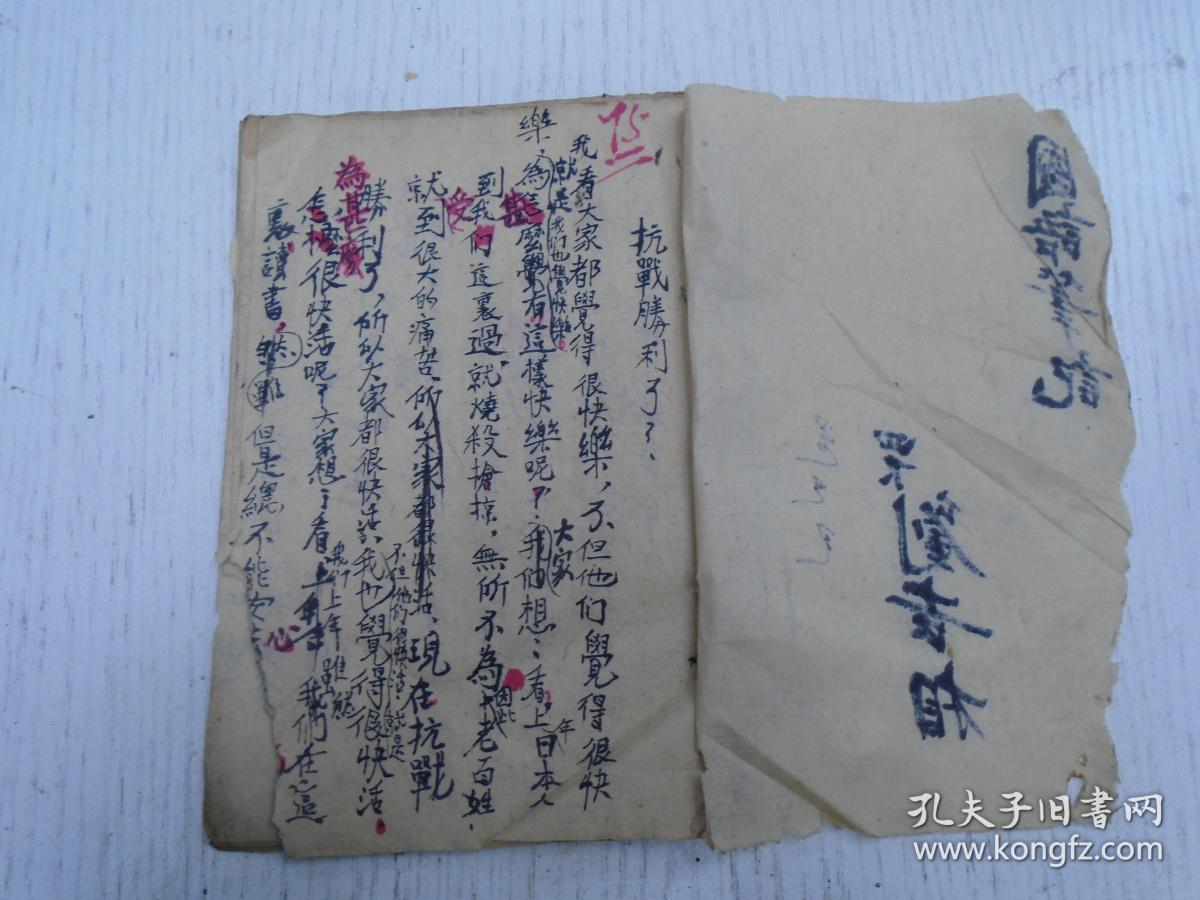 75
抗戰勝利了
我看大家都覺得很快樂,不但他們覺得很快
就是我們也覺快樂
樂、為怎麼覺有這樣快樂呢?我們想:看,上日本人
大家
年
到我們這裏過、就燒殺搶掠,無所不為、老百姓
甚
因此
就到很大的痛苦、所以大家都很快活、現在抗戰
受
不但他們很快活就是
勝利了,所以大家都很快活、我也覺得很快活
為甚麼
怎樣很快活呢?大家想:看上年我們在這
我們上年雖然
裏讀書,雖然但是總不能安
心
國語筆記
孔夫子旧书网
www.kongfz.com